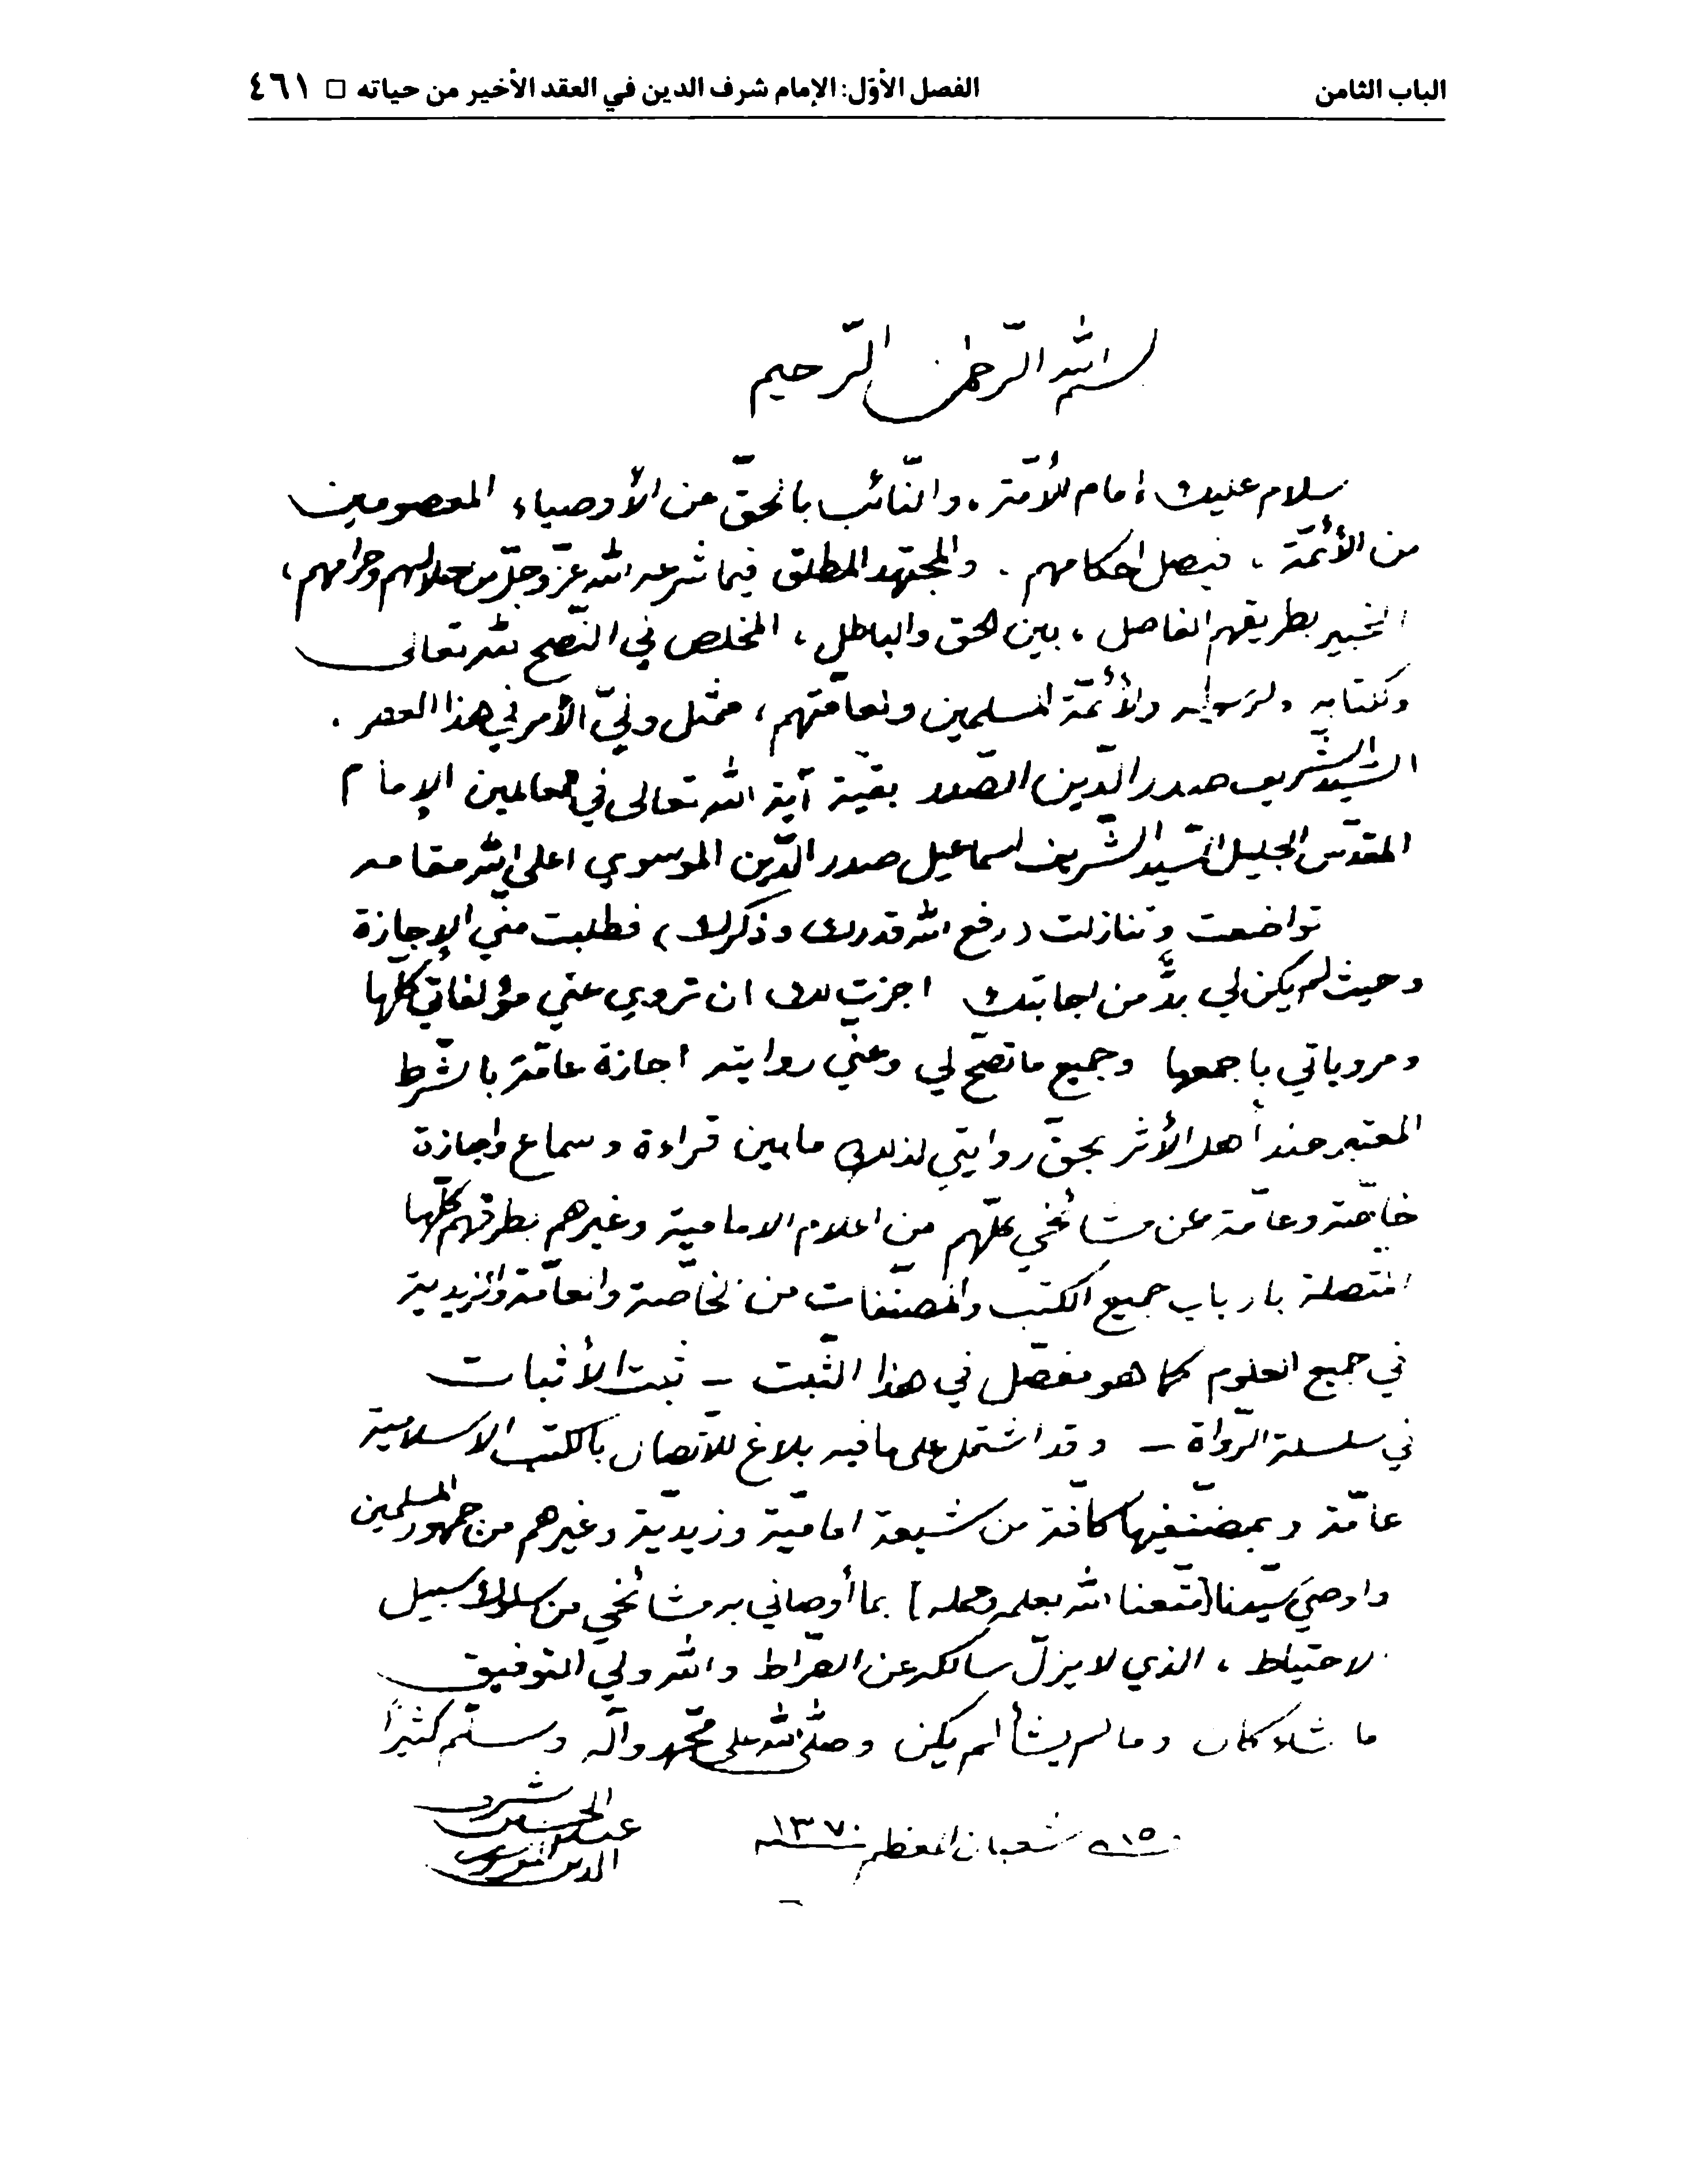 الباب الثامن
الفصل الأوّل: الإمام شرف الدين في العقد الأخير من حياته □ ٤٦١
بسم الله الرّحمن الرّحيم
سلام عليك إمام للأمّة، والنّائب بالحقّ عن الأوصياء المعصومين
من الأئمّة، فيصل احكامهم. والمجتهد المطلق فيما شرعه الله عزّ وجلّ من حلالهم وحرامهم،
الخبير بطريقهم الفاصل، بين الحق والباطل، المخلص في النّصح لله تعالى
ولكتابه ولرسوله ولأئمّة المسلمين ولعامّتهم، ممثل وليّ الأمر في هذا العصر.
السّيد الشّريف صدر الدّين الصّدر بقيّة آية الله تعالى في العالمين الإمام
المقدّس الجليل السّيد الشّريف اسماعيل صدر الدّين الموسوي اعلى الله مقامه
تواضعت وتنازلت (رفع الله قدرك وذكرك) فطلبت منّي الإجازة
وحيث لم يكن لي بدٌّ من اجابتك اجزت لك ان تروي عنّي مؤلفاتي كلّها
ومروياتي باجمعها وجميع ما تصحّ لي وعنّي روايته اجازة عامّة بالشّرط
المعتبر عند أهل الأثر بحقّ روايتي لذلك ما بين قراءة وسماع واجازة
خاصّة وعامّة عن مشائخي كلّهم من اعلام الامامية وغيرهم بطرقهم كلّها
المتصلة بارباب جميع الكتب والمصنّفات من الخاصّة والعامّة والزيدية
في جميع العلوم كما هو مفصّل في هذا الثّبت – ثبت الأثبات
في سلسلة الرّواة – وقد اشتمل على ما فيه بلاغ للاتّصال بالكتب الاسلامية
عامّة وبمصنّفيها كافّة من شيعة اماميّة وزيديّة وغيرهم من جمهور المسلمين
واوصي سيّدنا [متّعنا الله بعلمه وعمله] بما أوصاني به مشائخي من سلوك سبيل
الاحتياط، الذي لا يزلّ سالكه عن الصّراط والله ولي التوفيق
ما شاء كان وما لم يشأ لم يكن وصلّى الله على محمّد وآله وسلّم كثيرًا
١٥ شعبان المعظم ١٣٧٠
عبد الحسين شرف
الدين الموسوي